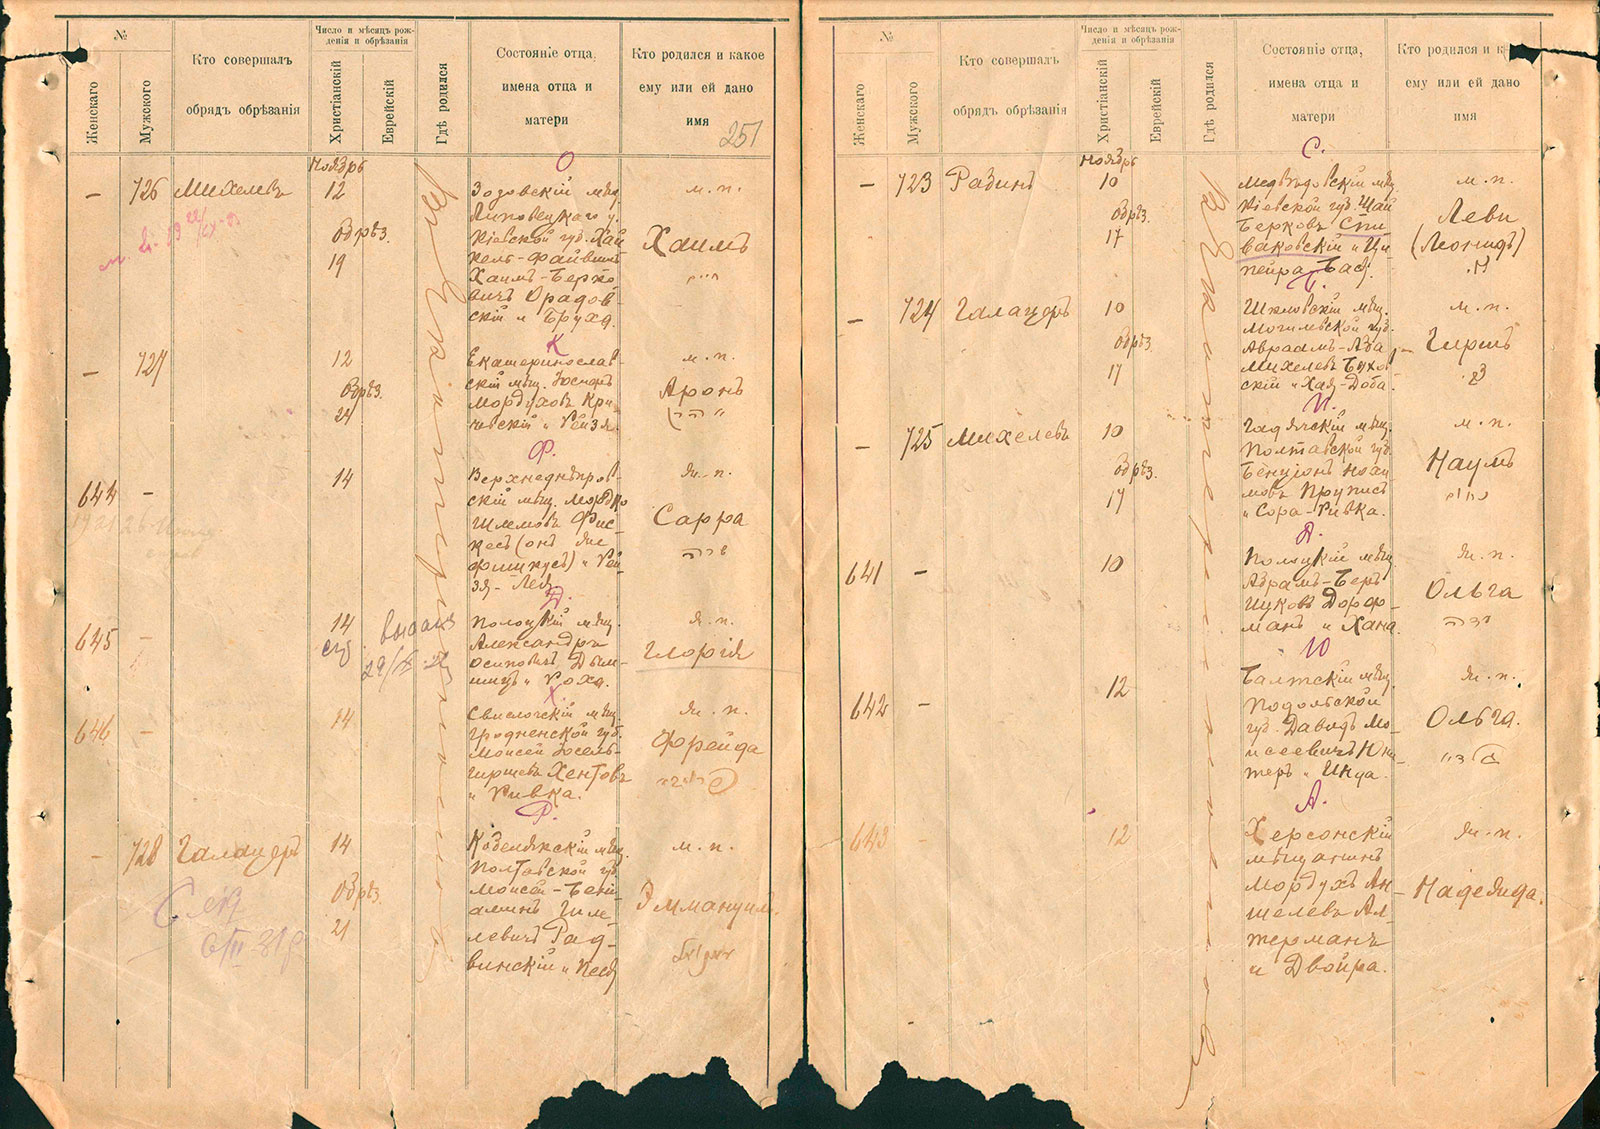 №
Женскаго
Мужского
Кто совершалъ
обрядъ обрѣзанія
Число и мѣсяцъ рож-
денія и обрѣзанія
Христіанскій
Еврейскій
Гдѣ родился
Состояніе отца,
имена отца и
матери
Кто родился и какое
ему или ей дано
имя
251
Ноябрь
О
— 726 Михелевъ 12
Зозовскій мѣщ.
Липовецкаго у.
Кіевской губ. Хай
кель-Файвишъ
Хаимъ-Берко
вичъ Орадов-
скій и Бруха.
Обрѣз.
19
м. п.
Хаимъ
חיים
К
— 727
12
Обрѣз.
24
Екатеринослав-
скій мѣщ. Іосифъ
Мордуховъ Кри-
чевскій и Рейзя.
м. п.
Аронъ
Ф.
644 —
14
Верхнеднѣпров-
скій мѣщ. Мордко
Шлемовъ Фис-
кесъ (онъ же
Фишкусъ) и Рей-
зя-Лея.
ж. п.
Сарра
שרה
Д.
645 —
14
выдана
Полоцкій мѣщ.
Александръ
Осиповичъ Дым-
шицъ и Роха.
ж. п.
Глорія
Х
646 —
14
Свислочскій мѣщ.
Гродненской губ.
Моисей Іосель-
Гиршевъ Хентовъ
и Ривка.
ж. п.
Фрейда
Р.
— 728 Галацеръ 14
Обрѣз.
21
Кобелякскій мѣщ.
Полтавской губ.
Моисей-Бені
аминъ Гиле
левичъ Рад-
винскій и Песя
м. п.
Эммануилъ.
Екатеринославъ
№
Женскаго
Мужского
Кто совершалъ
обрядъ обрѣзанія
Число и мѣсяцъ рож-
денія и обрѣзанія
Христіанскій
Еврейскій
Гдѣ родился
Состояніе отца,
имена отца и
матери
Кто родился и к
ему или ей дано
имя
Ноябрь
С.
— 723 Радинъ 10
Обрѣз.
17
Медвѣдовскій мѣщ.
Кіевской губ. Шай
Берковъ Спи
ваковскій и Ци
пейра-Бася.
м. п.
Леви
(Леонидъ)
Б.
— 724 Галацеръ 10
Обрѣз
17
Шкловскій мѣщ.
Могилевской губ.
Авраамъ-Аба
Михелевъ Бухов
скій и Хая-Доба.
м. п.
Гиршъ
П.
— 725 Михелевъ 10
Обрѣз.
17
Гадячскій мѣщ.
Полтавской губ.
Бенціонъ Ноаи
мовъ Пруписъ
и Сора-Ривка.
м. п.
Наумъ
נחום
Д.
641 —
10
Полоцкій мѣщ.
Абрамъ-Беръ
Ицковъ Дорф-
манъ и Хана.
ж. п.
Ольга
Ю
642 —
12
Балтскій мѣщ.
Подольской
губ. Давидъ Мо-
исеевичъ Юпи-
теръ и Инда.
ж. п.
Ольга.
А.
643 —
12
Херсонскій
мѣщанинъ
Мордухъ Ан-
шелевъ Ал-
терманъ
и Двойра.
ж. п.
Надежда.
Екатеринославъ